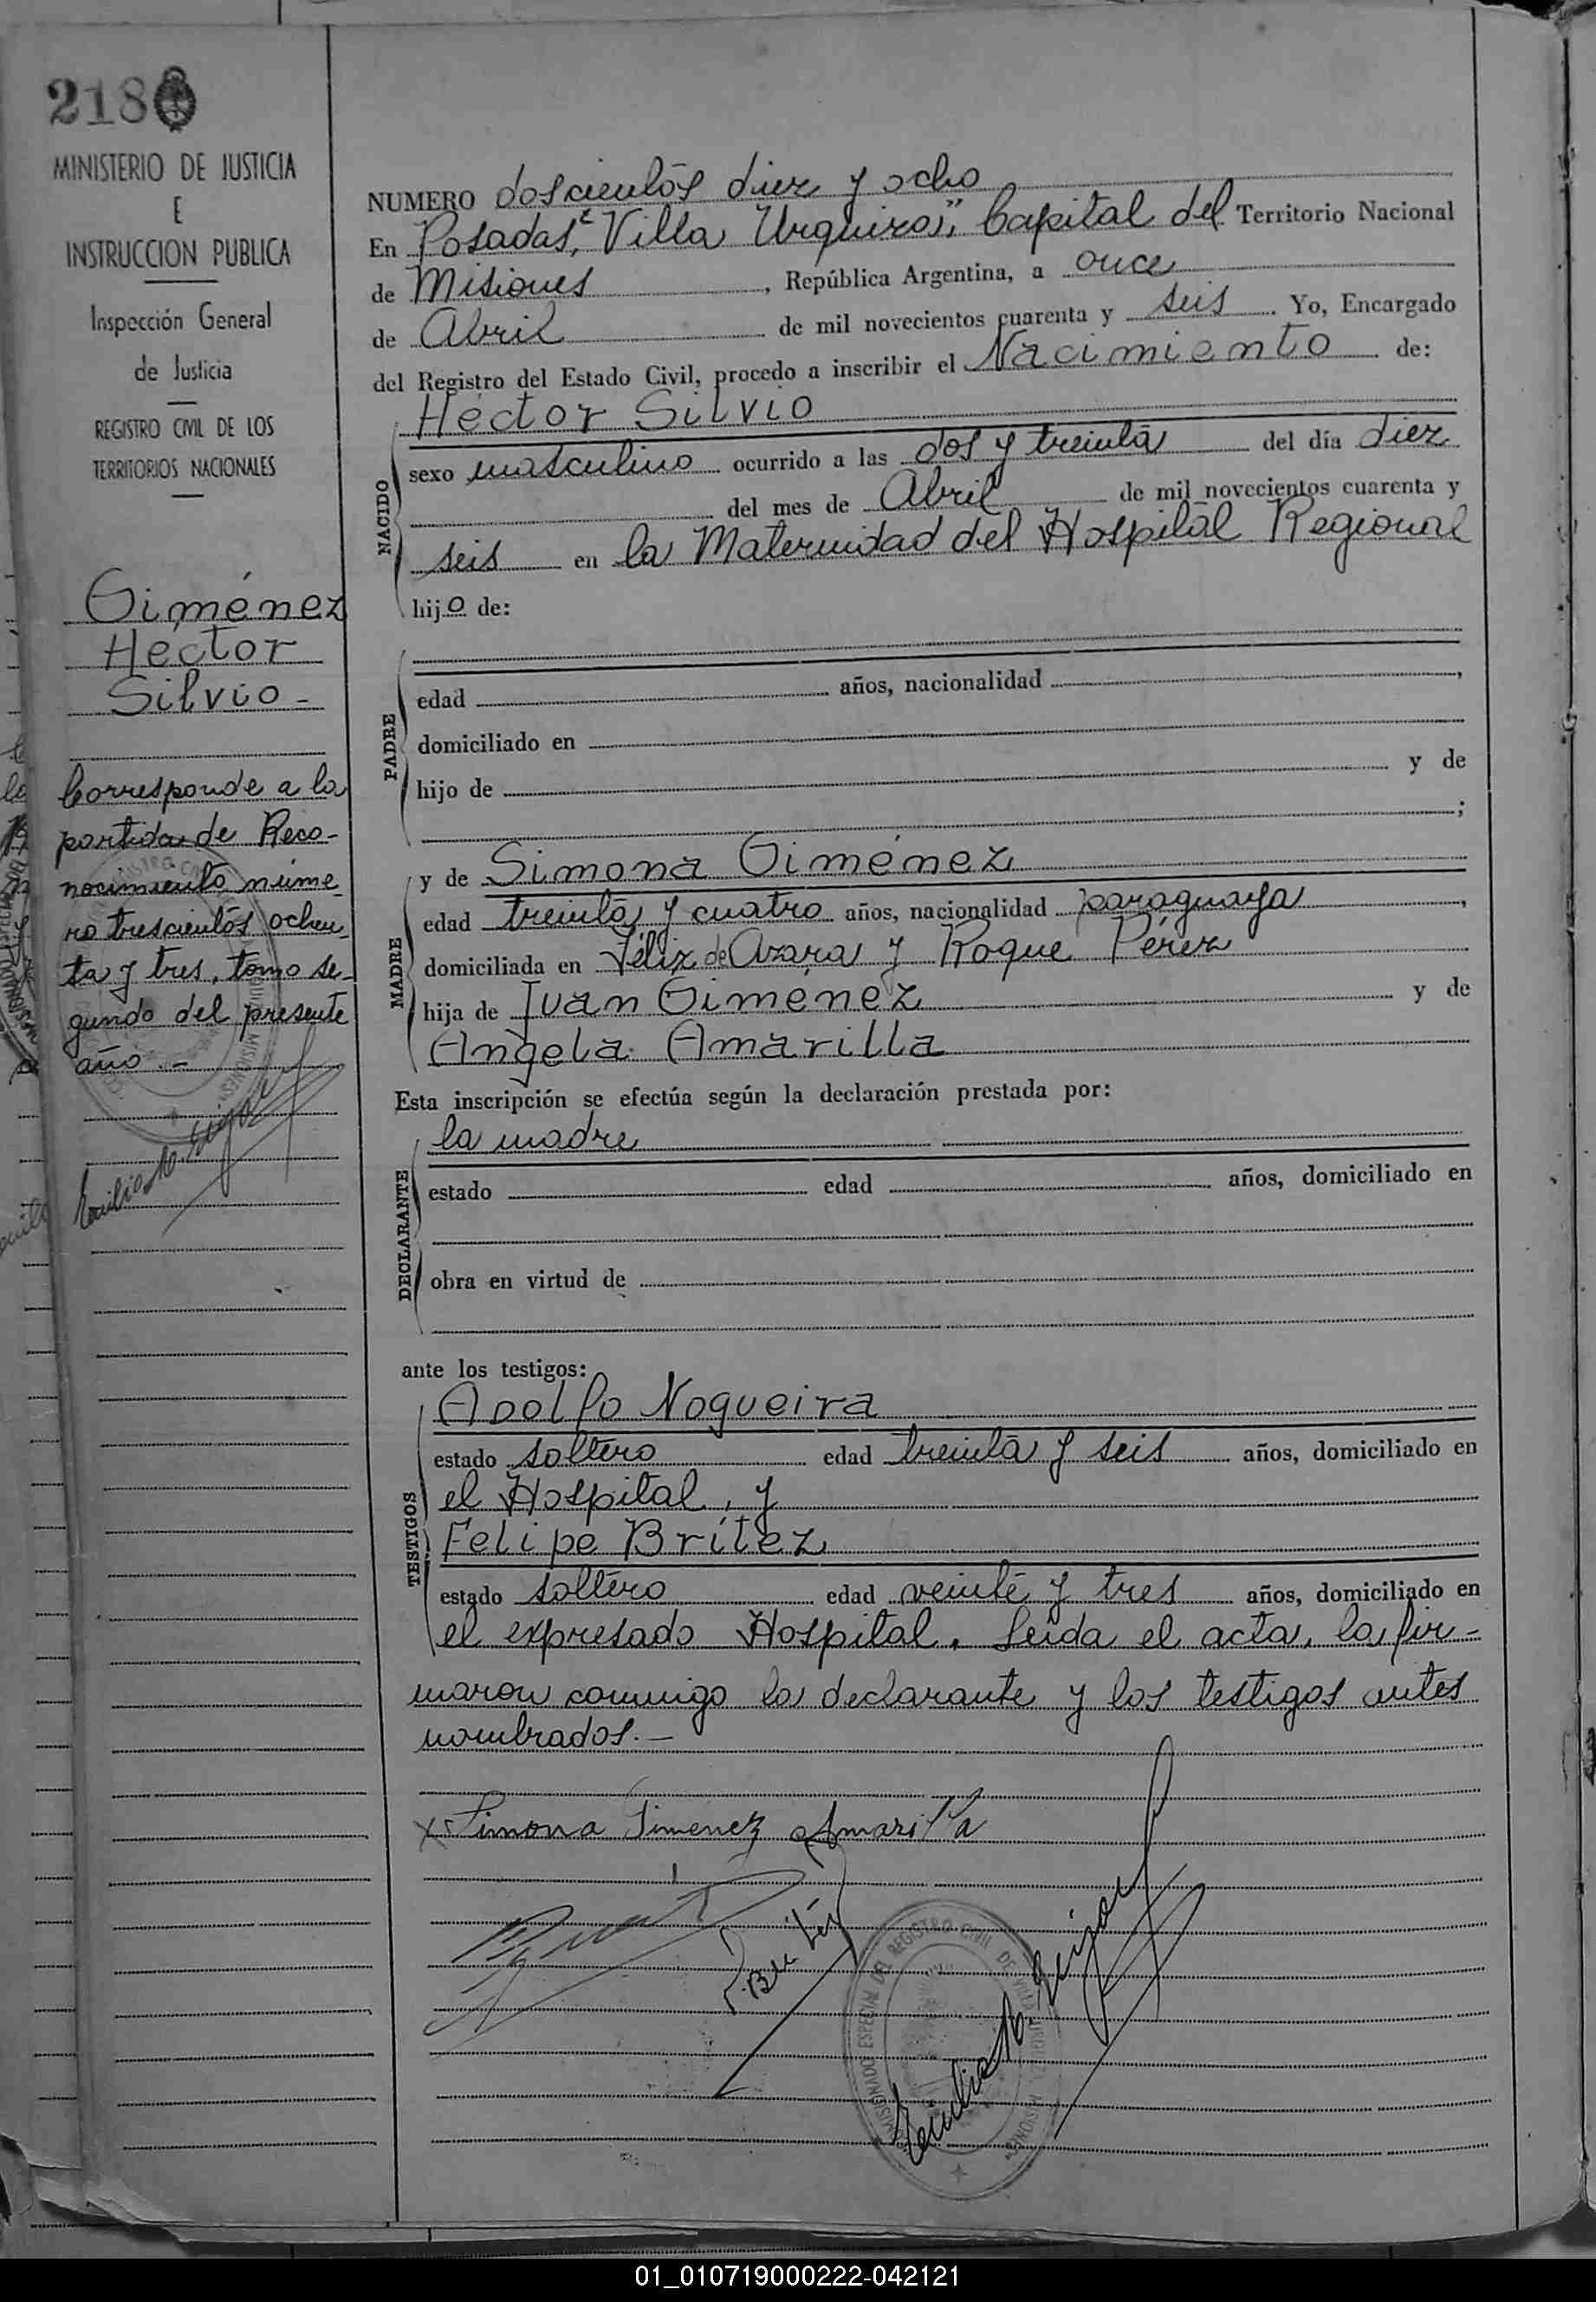 218
MINISTERIO DE JUSTICIA
E
INSTRUCCION PUBLICA
Inspección General
de Justicia
REGISTRO CIVIL DE LOS
TERRITORIOS NACIONALES
Giménez
Héctor
Silvio -
Corresponde a la
partida de Reco-
nocimiento núme
ro trescientos ochen
ta y tres, tomo se-
gundo del presente
año. -
NUMERO doscientos diez y ocho
En Posadas, "Villa Urquiza", Capital del Territorio Nacional
de Misiones, República Argentina, a once
de Abril de mil novecientos cuarenta y seis. Yo, Encargado
del Registro del Estado Civil, procedo a inscribir el Nacimiento de:
NACIDO
Héctor Silvio
sexo masculino ocurrido a las dos y treinta del día diez
del mes de Abril de mil novecientos cuarenta y
seis en la Maternidad del Hospital Regional
hijo de:
PADRE
edad años, nacionalidad ,
domiciliado en
hijo de y de
;
MADRE
y de Simona Giménez
edad treinta y cuatro años, nacionalidad paraguaya,
domiciliada en Féliz de Azara y Roque Pérez
hija de Juan Giménez y de
Angela Amarilla
Esta inscripción se efectúa según la declaración prestada por:
DECLARANTE
la madre
estado edad años, domiciliado en
obra en virtud de
ante los testigos:
TESTIGOS
Adolfo Nogueira
estado soltero edad treinta y seis años, domiciliado en
el Hospital, y
Felipe Brítez
estado soltero edad veinte y tres años, domiciliado en
el expresado Hospital. Leida el acta, la fir-
maron conmigo la declarante y los testigos antes
nombrados. -
x Simona Jimenez Amarilla
01_010719000222-042121